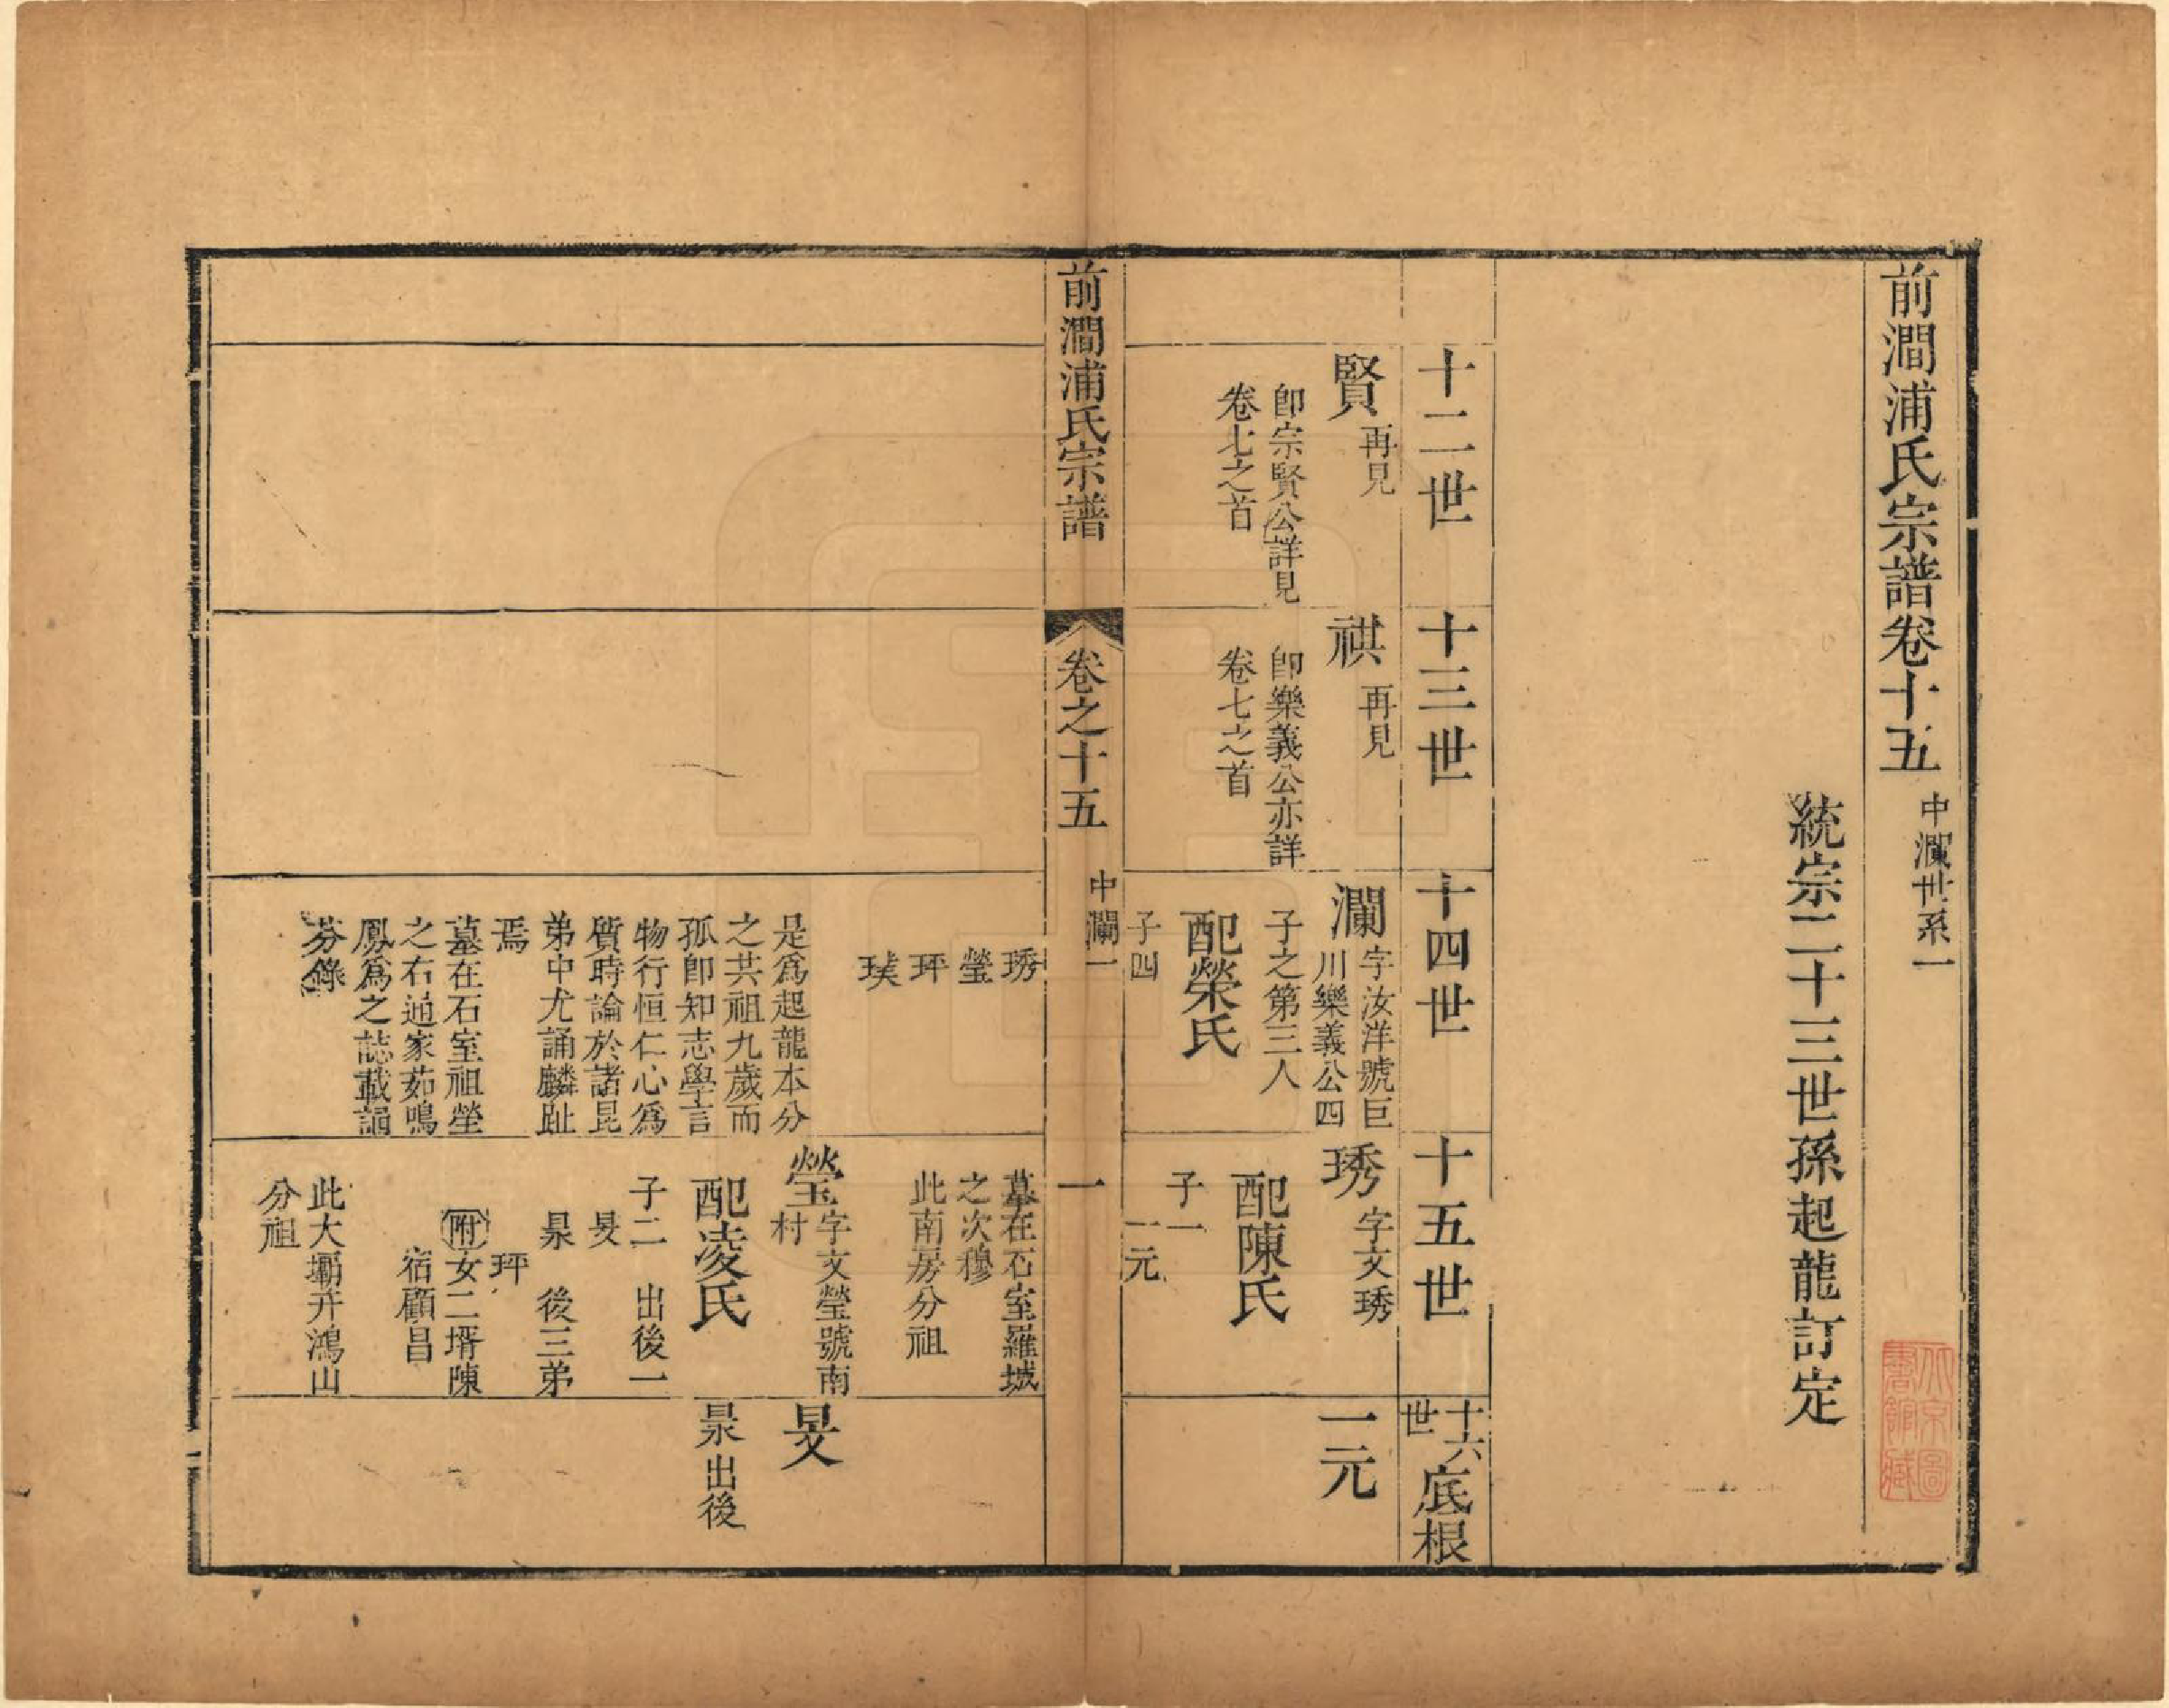 前澗浦氏宗譜卷十五
中瀾世系一
統宗二十三世孫起龍訂定
十二世
十三世
十四世
十五世
十六世
底根
賢
再見
卽宗賢公詳見
卷七之首
祺
再見
卽樂義公亦詳
卷七之首
瀾
字汝洋號巨
川樂義公四
子之第三人
配榮氏
子四
琇
字文琇
配陳氏
子一
一元
一元
前澗浦氏宗譜
卷之十五
中瀾一
一
琇
瑩
玶
𤥭
是爲起龍本分
之共祖九歲而
孤卽知志學言
物行恒仁心爲
質時論於諸昆
弟中尤誦麟趾
焉
墓在石室祖塋
之右通家茹鳴
鳳爲之誌載誦
芬錄
墓在石室羅城
之次穆
此南房分祖
瑩
字文瑩號南
村
配凌氏
子二 出後一
旻
杲 後三弟
玶
附女二壻陳
宿顧昌
此大壩幵鴻山
分祖
旻
杲出後